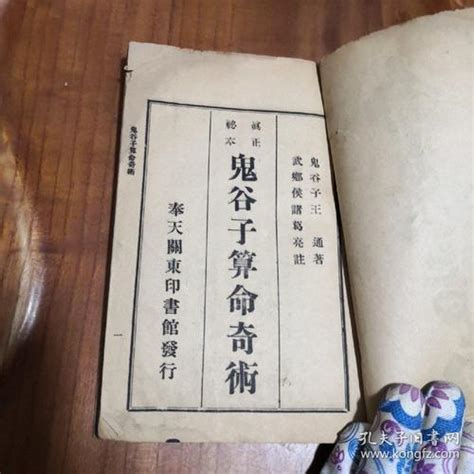 鬼谷子王通著
武鄉侯諸葛亮註
真正
祕本
鬼谷子算命奇術
奉天關東印書館發行
鬼谷子算命奇術
一
孔夫子旧书网
www.kongfz.com